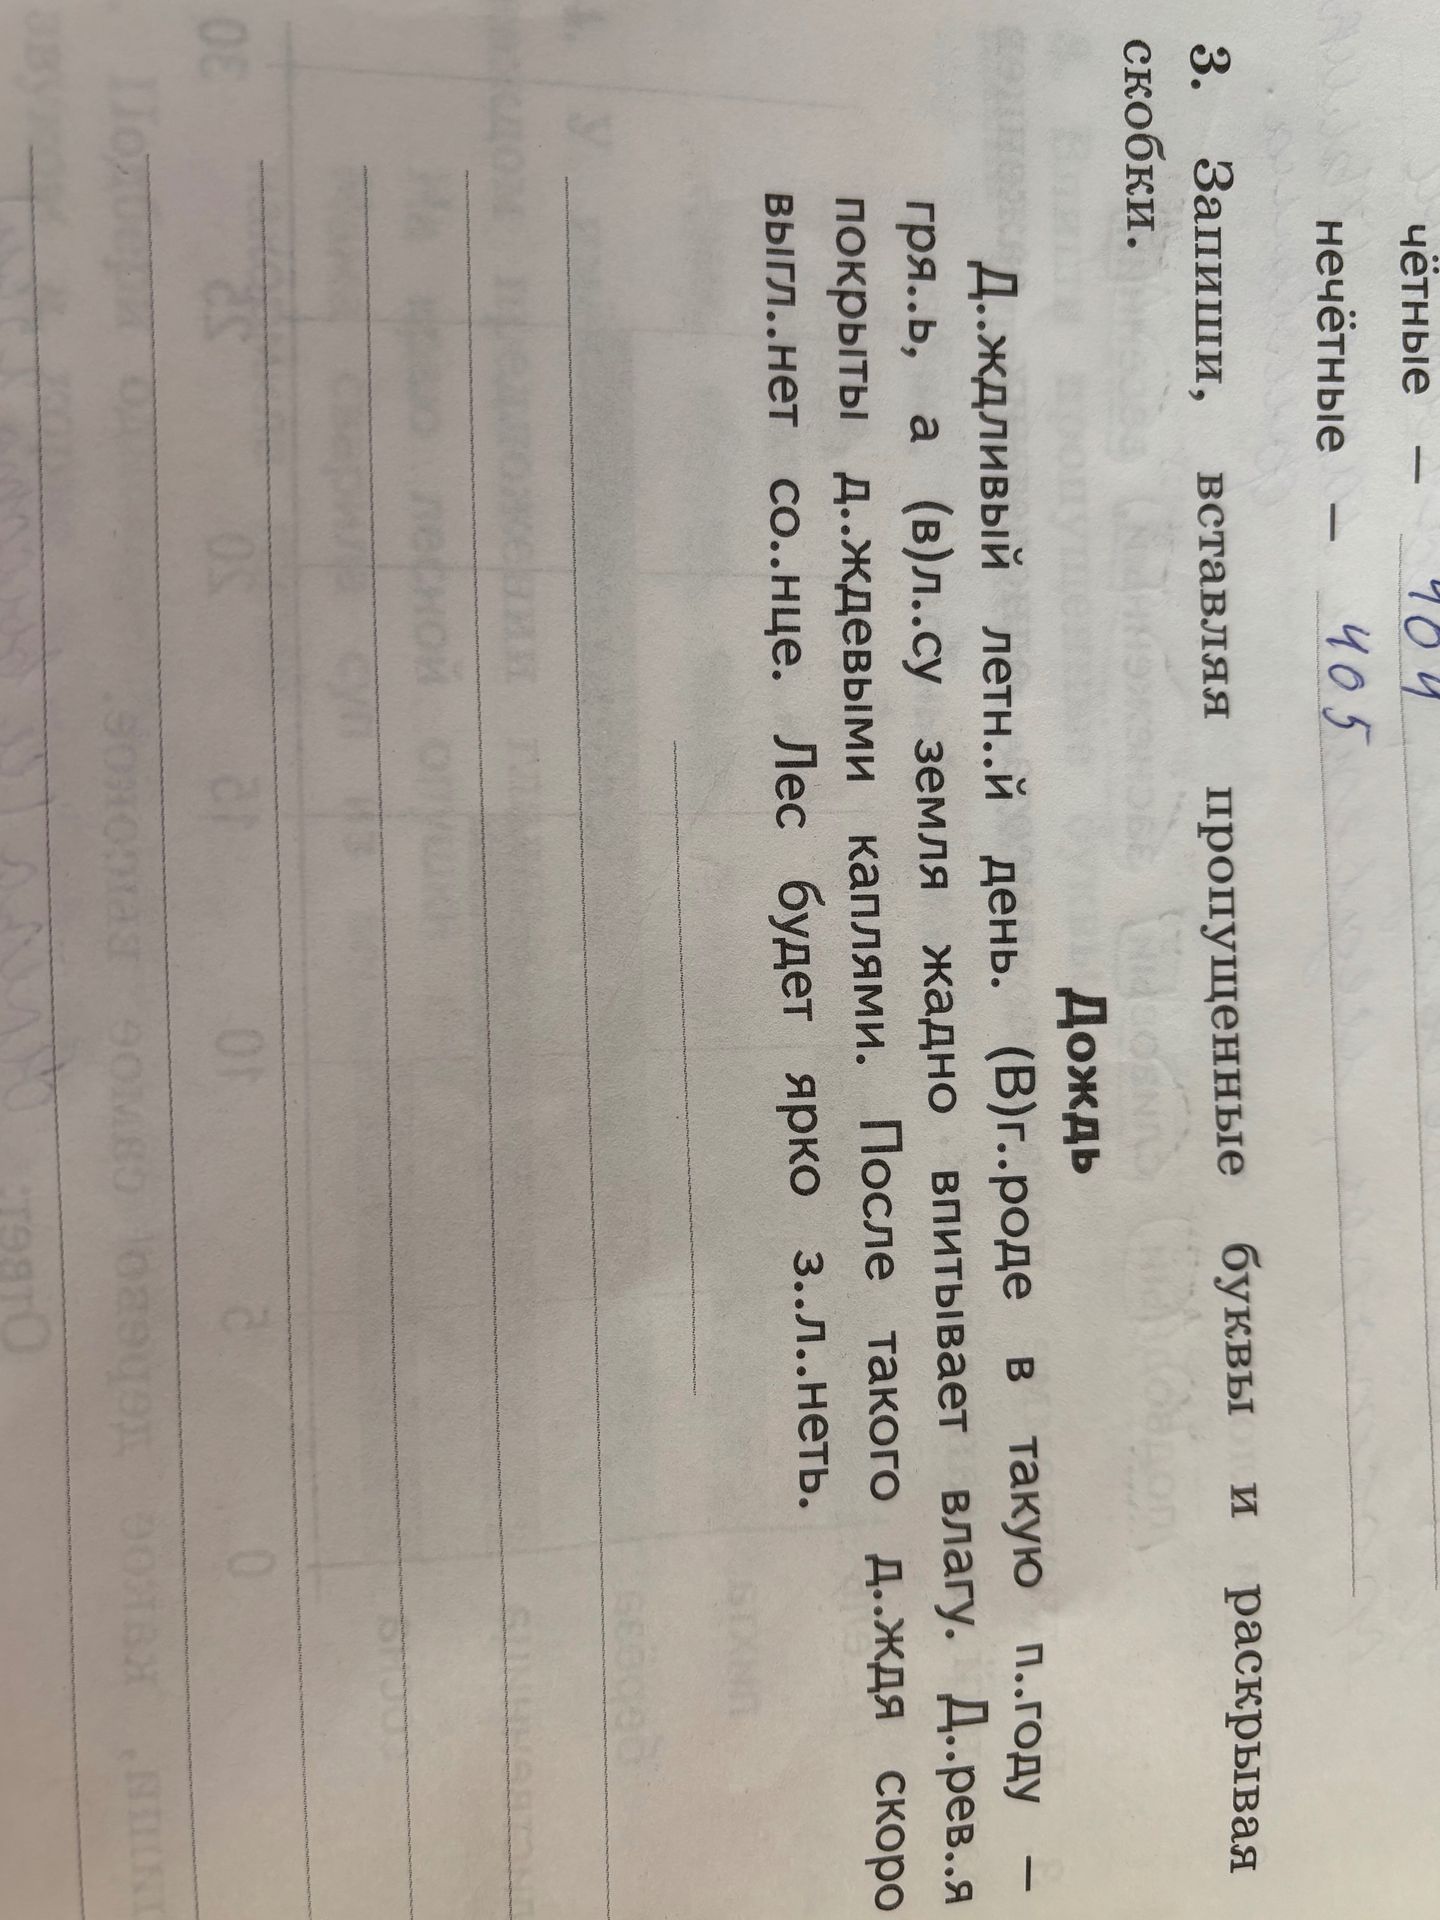 чётные — 404
нечётные — 405
3. Запиши, вставляя пропущенные буквы и раскрывая
скобки.
Дождь
Д..ждливый летн..й день. (В)г..роде в такую п..году —
гря..ь, а (в)л..су земля жадно впитывает влагу. Д..рев..я
покрыты д..ждевыми каплями. После такого д..ждя скоро
выгл..нет со..нце. Лес будет ярко з..л..неть.